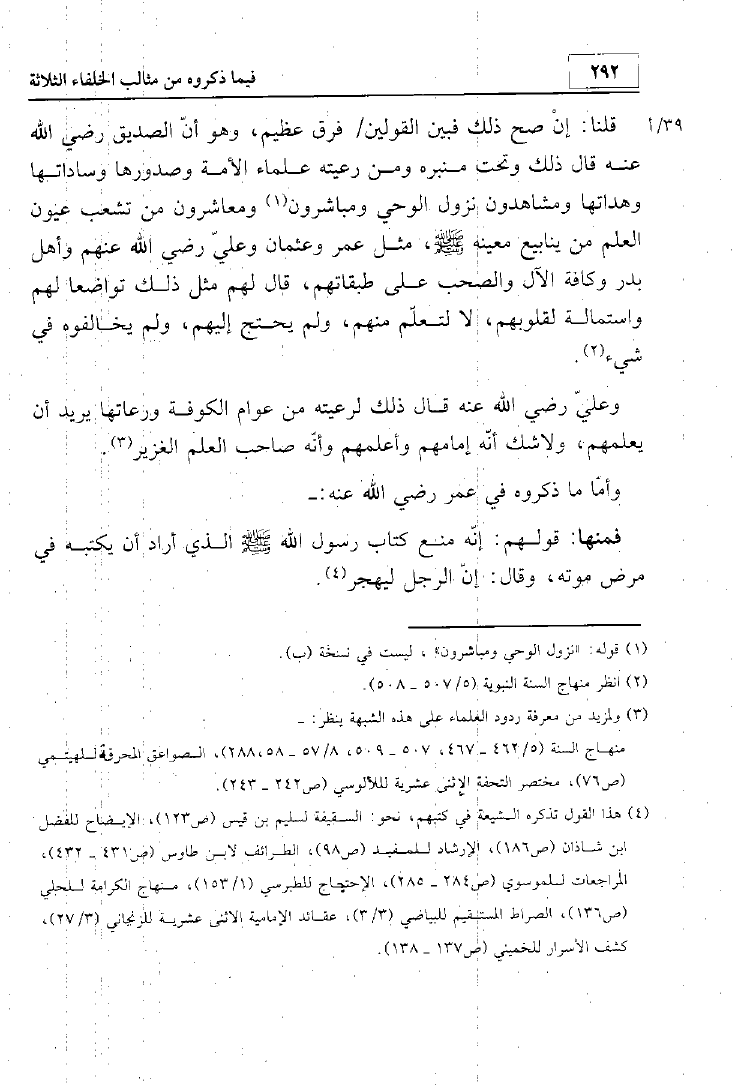 ٢٩٢
فيما ذكروه من مثالب الخلفاء الثلاثة
٣٩/أ
قلنا: إنْ صح ذلك فبين القولين/ فرق عظيم، وهو أنّ الصديق رضي الله
عنه قال ذلك وتحت منبره ومن رعيته علماء الأمة وصدورها وساداتها
وهداتها ومشاهدون نزول الوحي ومباشرون(١) ومعاشرون من تشعب عيون
العلم من ينابيع معينه ﷺ، مثل عمر وعثمان وعليّ رضي الله عنهم وأهل
بدر وكافة الآل والصحب على طبقاتهم، قال لهم مثل ذلك تواضعا لهم
واستمالة لقلوبهم، لا لتعلّم منهم، ولم يحتج إليهم، ولم يخالفوه في
شيء(٢).
وعليّ رضي الله عنه قال ذلك لرعيته من عوام الكوفة ورعاتها يريد أن
يعلمهم، ولاشك أنّه إمامهم وأعلمهم وأنّه صاحب العلم الغزير(٣).
وأمّا ما ذكروه في عمر رضي الله عنه:ـ
فمنها: قولهم: إنّه منع كتاب رسول الله ﷺ الذي أراد أن يكتبه في
مرض موته، وقال: إنّ الرجل ليهجر(٤).
(١) قوله: «نزول الوحي ومباشرون» ، ليست في نسخة (ب).
(٢) انظر منهاج السنة النبوية (٥/ ٥٠٧ ـ ٥٠٨).
(٣) ولمزيد من معرفة ردود العلماء على هذه الشبهة ينظر: ـ
منهاج السنة (٥/ ٤٦٢ ـ ٤٦٧، ٥٠٧ ـ ٥٠٩، ٨/ ٥٧ ـ ٢٨٨،٥٨)، الصواعق المحرقة للهيتمي
(ص٧٦)، مختصر التحفة الإثنى عشرية للآلوسي (ص٢٤٢ ـ ٢٤٣).
(٤) هذا القول تذكره الشيعة في كتبهم، نحو: السقيفة لسليم بن قيس (ص١٢٣)، الإيضاح للفضل
ابن شاذان (ص١٨٦)، الإرشاد للمفيد (ص٩٨)، الطرائف لابن طاوس (ص٤٣١ ـ ٤٣٢)،
المراجعات للموسوي (ص٢٨٤ ـ ٢٨٥)، الإحتجاج للطبرسي (١/ ١٥٣)، منهاج الكرامة للحلي
(ص١٣٦)، الصراط المستقيم للبياضي (٣/٣)، عقائد الإمامية الاثنى عشرية للزنجاني (٣/ ٢٧)،
كشف الأسرار للخميني (ص١٣٧ ـ ١٣٨).